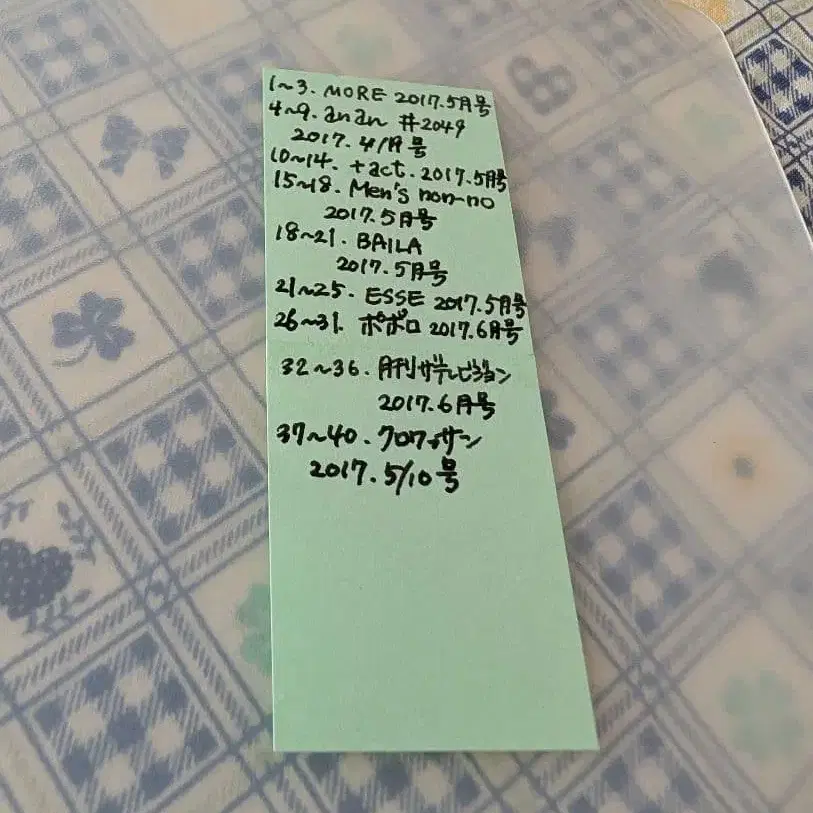 1~3. MORE 2017.5月号
4~9. anan #2049
2017. 4/19号
10~14. +act. 2017.5月号
15~18. Men's non-no
2017.5月号
18~21. BAILA
2017.5月号
21~25. ESSE 2017.5月号
26~31. ポポロ 2017.6月号
32~36. 月刊ザテレビジョン
2017.6月号
37~40. クロワッサン
2017.5/10号